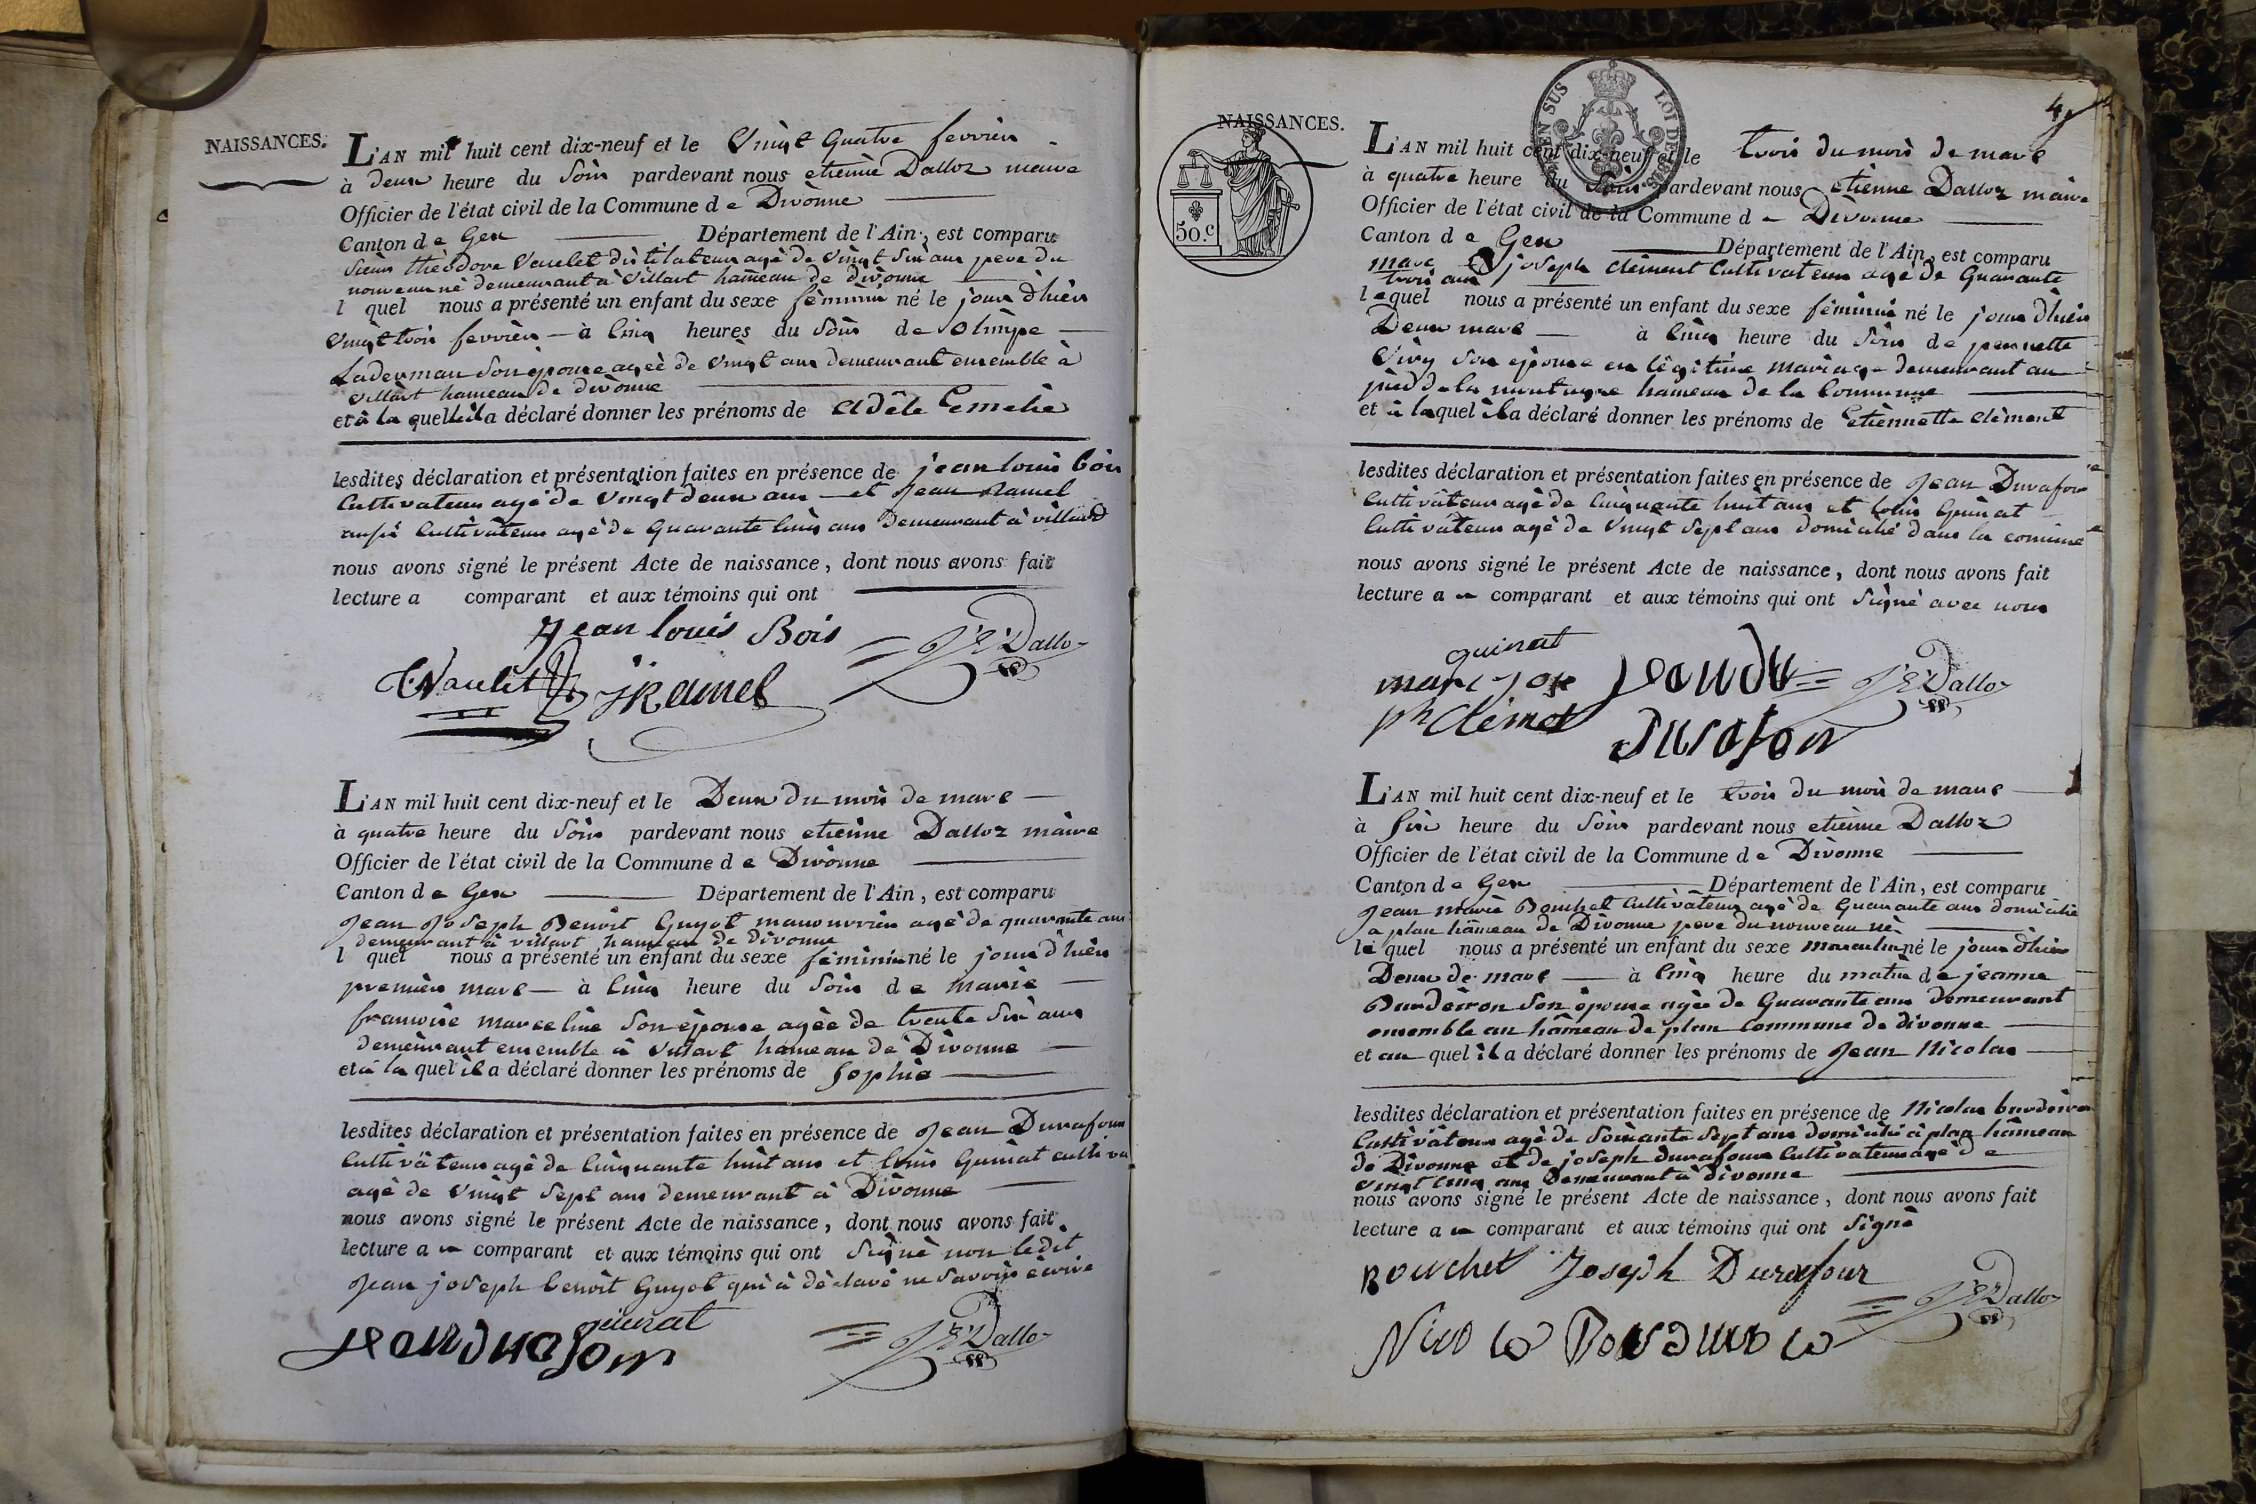 NAISSANCES.
L'AN mil huit cent dix-neuf et le Vingt Quatre fevrier
à deux heure du Soir pardevant nous etienne Dalloz maire
Officier de l'état civil de la Commune de Divonne
Canton de Gex Département de l'Ain, est comparu
Sieur théodore Vaulet distilateur agé de Vingt Six ans pere du
nouveau né demeurant à Villart hameau de divonne
l quel nous a présenté un enfant du sexe féminin né le jour d'hier
Vingt trois fevrier à Cinq heures du Soir de Olimpe
Laderman Son épouse agée de Vingt ans demeurant ensemble à
Villart hameau de divonne
et à la quelle il a déclaré donner les prénoms de Adèle Emelie
lesdites déclaration et présentation faites en présence de jean louis bois
Cultivateur agé de Vingt deux ans et Jean Ramel
aussi Cultivateur agé de Quarante Cinq ans Demeurant à villard
nous avons signé le présent Acte de naissance, dont nous avons fait
lecture a comparant et aux témoins qui ont
Jean louis Bois
Vaulet JRamel JEDalloz
L'AN mil huit cent dix-neuf et le Deux du mois de mars
à quatre heure du Soir pardevant nous etienne Dalloz maire
Officier de l'état civil de la Commune de Divonne
Canton de Gex Département de l'Ain, est comparu
Jean Joseph Benoit Guyot manouvrier agé de quarante ans
demeurant à villart hameau de divonne
l quel nous a présenté un enfant du sexe féminin né le jour d'hier
premier mars à Cinq heure du Soir de Marie
françoise marceline Son épouse agée de trente Six ans
demeurant ensemble à Villart hameau de Divonne
et à la quel il a déclaré donner les prénoms de Sophie
lesdites déclaration et présentation faites en présence de Jean Durafour
Cultivateur agé de Cinquante huit ans et Louis Guinat cultiva
agé de Vingt Sept ans demeurant à Divonne
nous avons signé le présent Acte de naissance, dont nous avons fait
lecture au comparant et aux témoins qui ont Signé non ledit
Jean joseph benoit Guyot qui à déclaré ne Savoir écrire
guinat
jean durafour JEDalloz
4
NAISSANCES.
50.c
L'AN mil huit cent dix-neuf et le trois du mois de mars
à quatre heure du Soir pardevant nous etienne Dalloz maire
Officier de l'état civil de la Commune de Divonne
Canton de Gex Département de l'Ain, est comparu
marc joseph clément Cultivateur agé de Quarante
trois ans
lequel nous a présenté un enfant du sexe féminin né le jour d'hier
Deux mars à Cinq heure du Soir de pernette
Son épouse en légitime mariage demeurant au
pied de la montagne hameau de la Commune
et à laquel il a déclaré donner les prénoms de Etiennette clément
lesdites déclaration et présentation faites en présence de Jean Durafour
Cultivateur agé de Cinquante huit ans et Louis Guinat
Cultivateur agé de Vingt Sept ans Domicilié dans la comune
nous avons signé le présent Acte de naissance, dont nous avons fait
lecture au comparant et aux témoins qui ont Signé avec nous
guinat
marc jose jean du JEDalloz
ph Clémet
Durafour
L'AN mil huit cent dix-neuf et le trois du mois de mars
à Six heure du Soir pardevant nous etienne Dalloz
Officier de l'état civil de la Commune de Divonne
Canton de Gex Département de l'Ain, est comparu
Jean Marie Bouchet Cultivateur agé de Quarante ans domicilié
a plan hameau de Divonne pere du nouveau né
le quel nous a présenté un enfant du sexe masculin né le jour d'hier
Deux de mars à Cinq heure du matin de jeanne
Burdeiron Son épouse agée de Quarante ans Demeurant
ensemble au hameau de plan commune de divonne
et au quel il a déclaré donner les prénoms de Jean Nicolas
lesdites déclaration et présentation faites en présence de Nicolas burdeiron
Cultivateur agé de Soixante Sept ans domicilié à plan hameau
de Divonne et de joseph durafour Cultivateur agé de
Vingt Cinq ans Demeurant à divonne
nous avons signé le présent Acte de naissance, dont nous avons fait
lecture au comparant et aux témoins qui ont Signé
Bouchet Joseph Durafour
JEDalloz